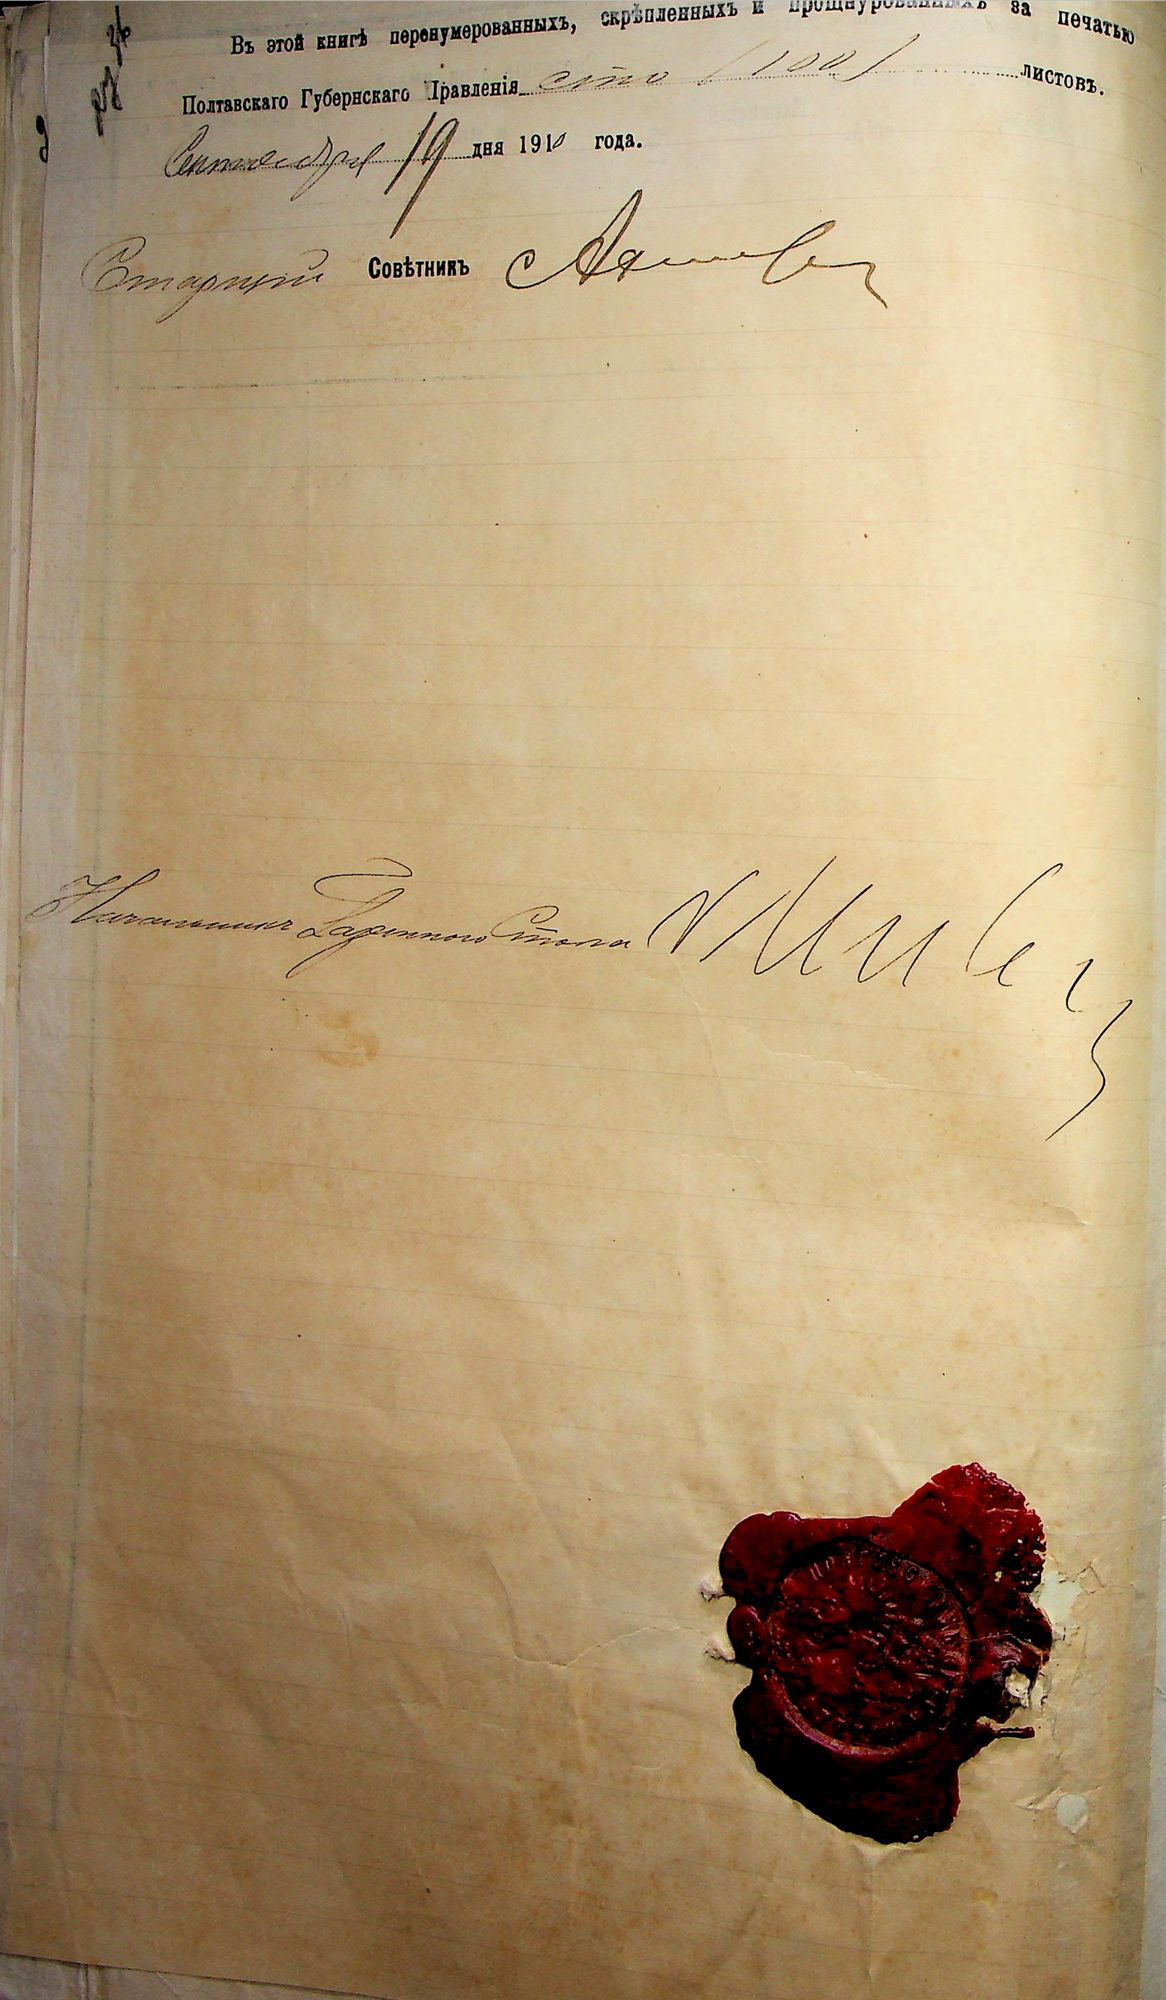 Въ этой книгѣ перенумерованныхъ, скрѣпленныхъ и прошнурованныхъ за печатью
Полтавскаго Губернскаго Правленія сто (100) листовъ.
Сентября 19 дня 1910 года.
Старшій Совѣтникъ
Начальникъ Стола